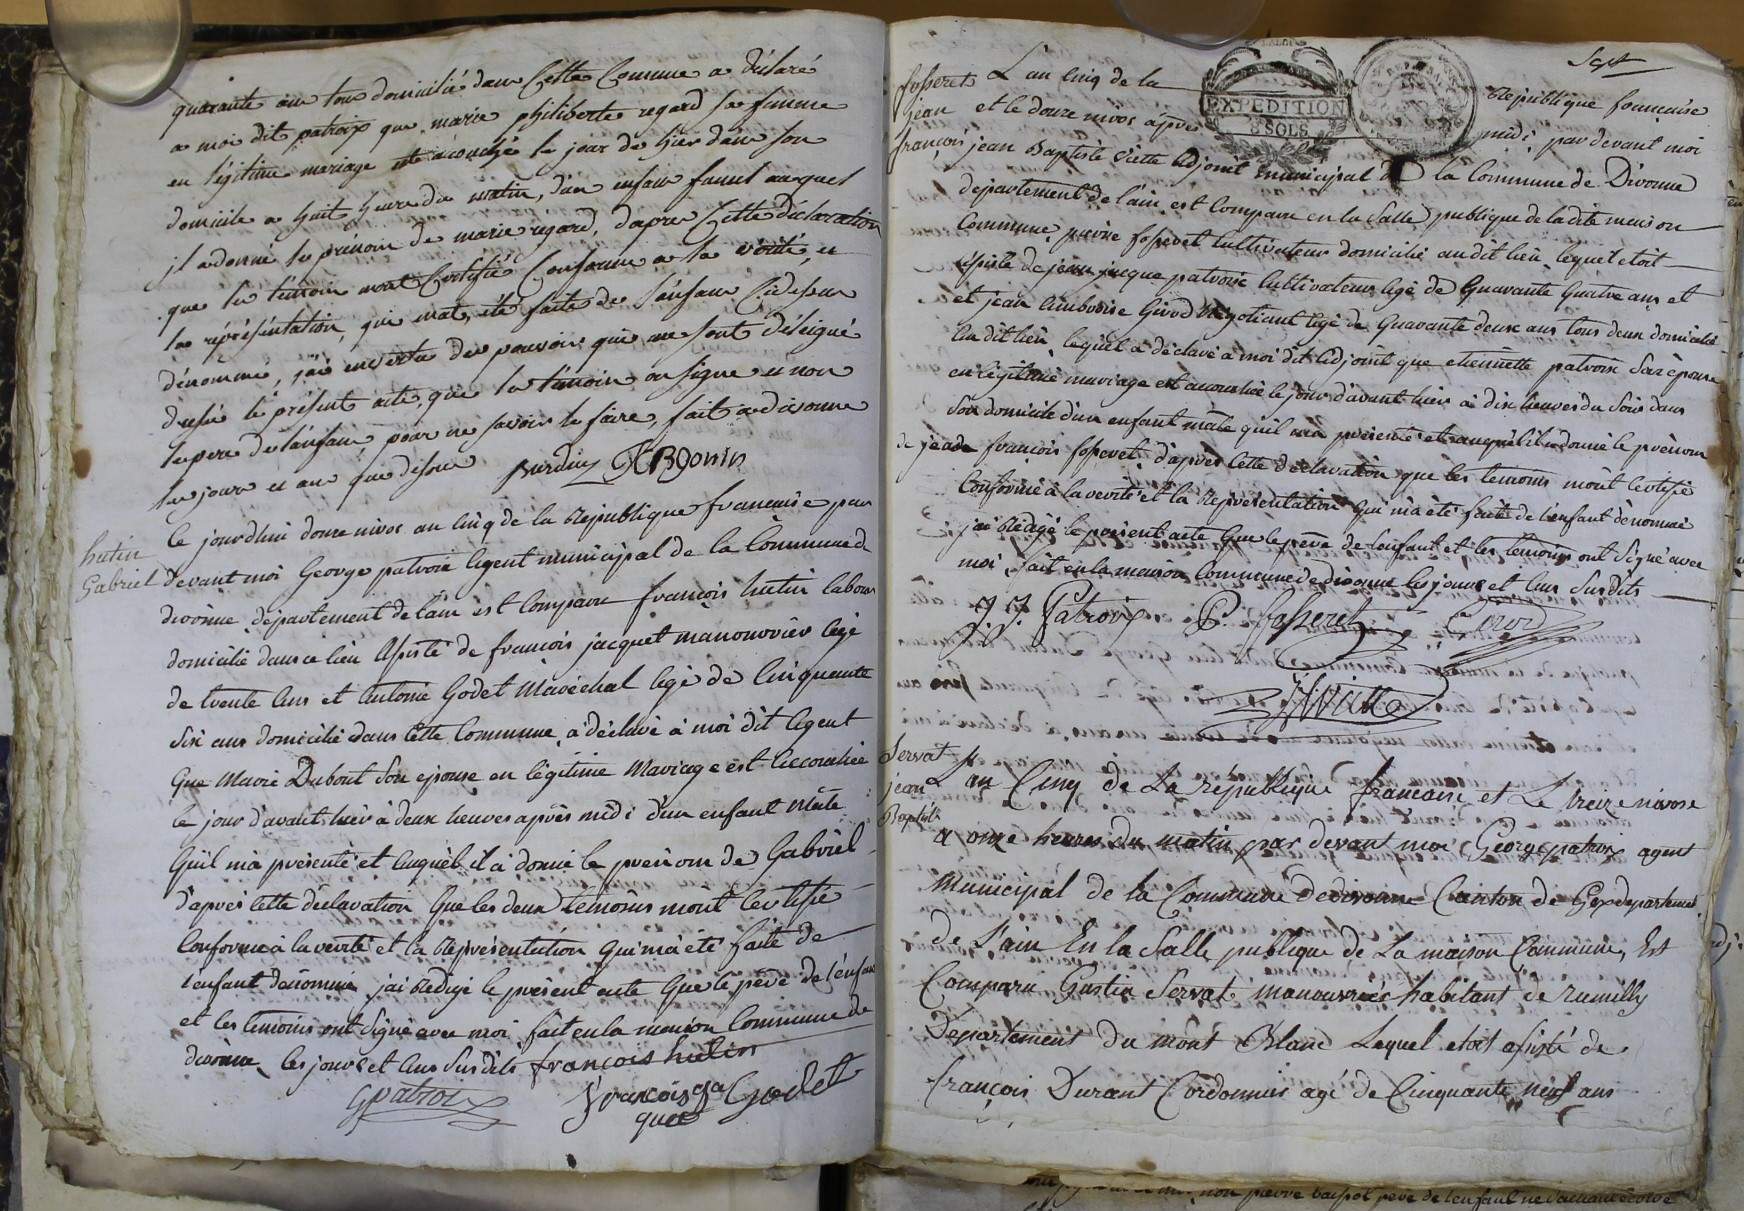 quarante ans tous domicilié dans Cette Commune a déclaré
a moi dit patroix que marie philiberte regard sa femme
en légitime mariage été acouchée le jour de hier dans son
domicile a huit heure du matin, d'un enfant femel auquel
jl adonné le prénom de marie regard, d'apres Cette déclaration
que les témoin mont Certifié Conforme a la vérité, et
la réprésentation, qui mat, été faite de l'énfant Cidessus
dénommé, j'ai envertu des pouvoirs qui me sont déléigué
dressé le présent acte, que les témoin on signe et non
le pere de l'énfant, pour ne savoir le faire, fait a divonne
les jours et an que dessus
hutin
Gabriel
Ce jourdhui douze nivos an Cinq de la République francaise par
devant moi George patroix agent municipal de la Commune de
divonne département de l'ain est Comparu françois hutin labour
domicilié dans ce lieu assisté de françois jacquet manouvrier agé
de trente ans et antoine Godet Maréchal agé de Cinquante
Six ans domicilié dans Cette Commune, à déclaré à moi dit agent
Que Marie Dubout Son épouse en légitime Mariage est accouchée
le jour d'avant hier à deux heures après midi d'un enfant mâle
Quil m'a présenté et auquel il à donné le prénom de Gabriel
d'après Cette déclaration Que les deux temoins m'ont Certifié
Conforme à la verité et la Représentation Qui m'a été faite de
l'enfant dénommé j'ai Rédigé le présent acte Que le père de l'enfant
et les temoins ont Signé avec moi, fait en la maison Commune de
divonne les jours et ans Susdits françois hutin
Gpatroix françois Ja Godet
quet
Sept
fosseret
jean
françois
L'an Cinq de la République francaise
et le douze nivos après midi, par devant moi
jean Baptiste Viette adjoint municipal de la Commune de Divonne
département de l'ain est Comparu en la Salle publique de la dite maison
Commune, pierre fosseret Cultivateur domicilié audit lieu, lequel etoit
assisté de jean jacque patroix Cultivateur agé de Quarante Quatre ans et
et jean ambroise Girod Négotiant agé de Quarante deux ans tous deux domicilié
audit lieu, lequel à déclaré à moi dit adjoint que etiennette patroix Son épouse
en légitime mariage est accouchée le jour d'avant hier à dix heures du Soir dans
Son domicile d'un enfant mâle quil m'a présenté et auquel il a donné le prénom
de jean françois fosseret, d'après Cette déclaration que les temoins m'ont Certifié
Conforme à la verité et la Représentation Qui m'a été faite de l'enfant dénommé
j'ai Rédigé le présent acte Que le père de l'enfant et les temoins ont Signé avec
moi, fait en la maison Commune de divonne les jours et ans Susdits
J. J. Patroix P. fosseret Girod
EXPEDITION
3 SOLS
Servat
jean
Baptiste
L'an Cinq de La république francaise et Le treize nivose
a onze heures du matin par devant moi George patroix agent
Municipal de la Commune de divonne Canton de Gex departement
de L'ain En la Salle publique de La maison Commune, Est
Comparu Gustin Servat manouvrier habitant de rumilly
Departement du mont Blanc Lequel etoit assisté de
françois Durant Cordonnier agé de Cinquante neuf ans